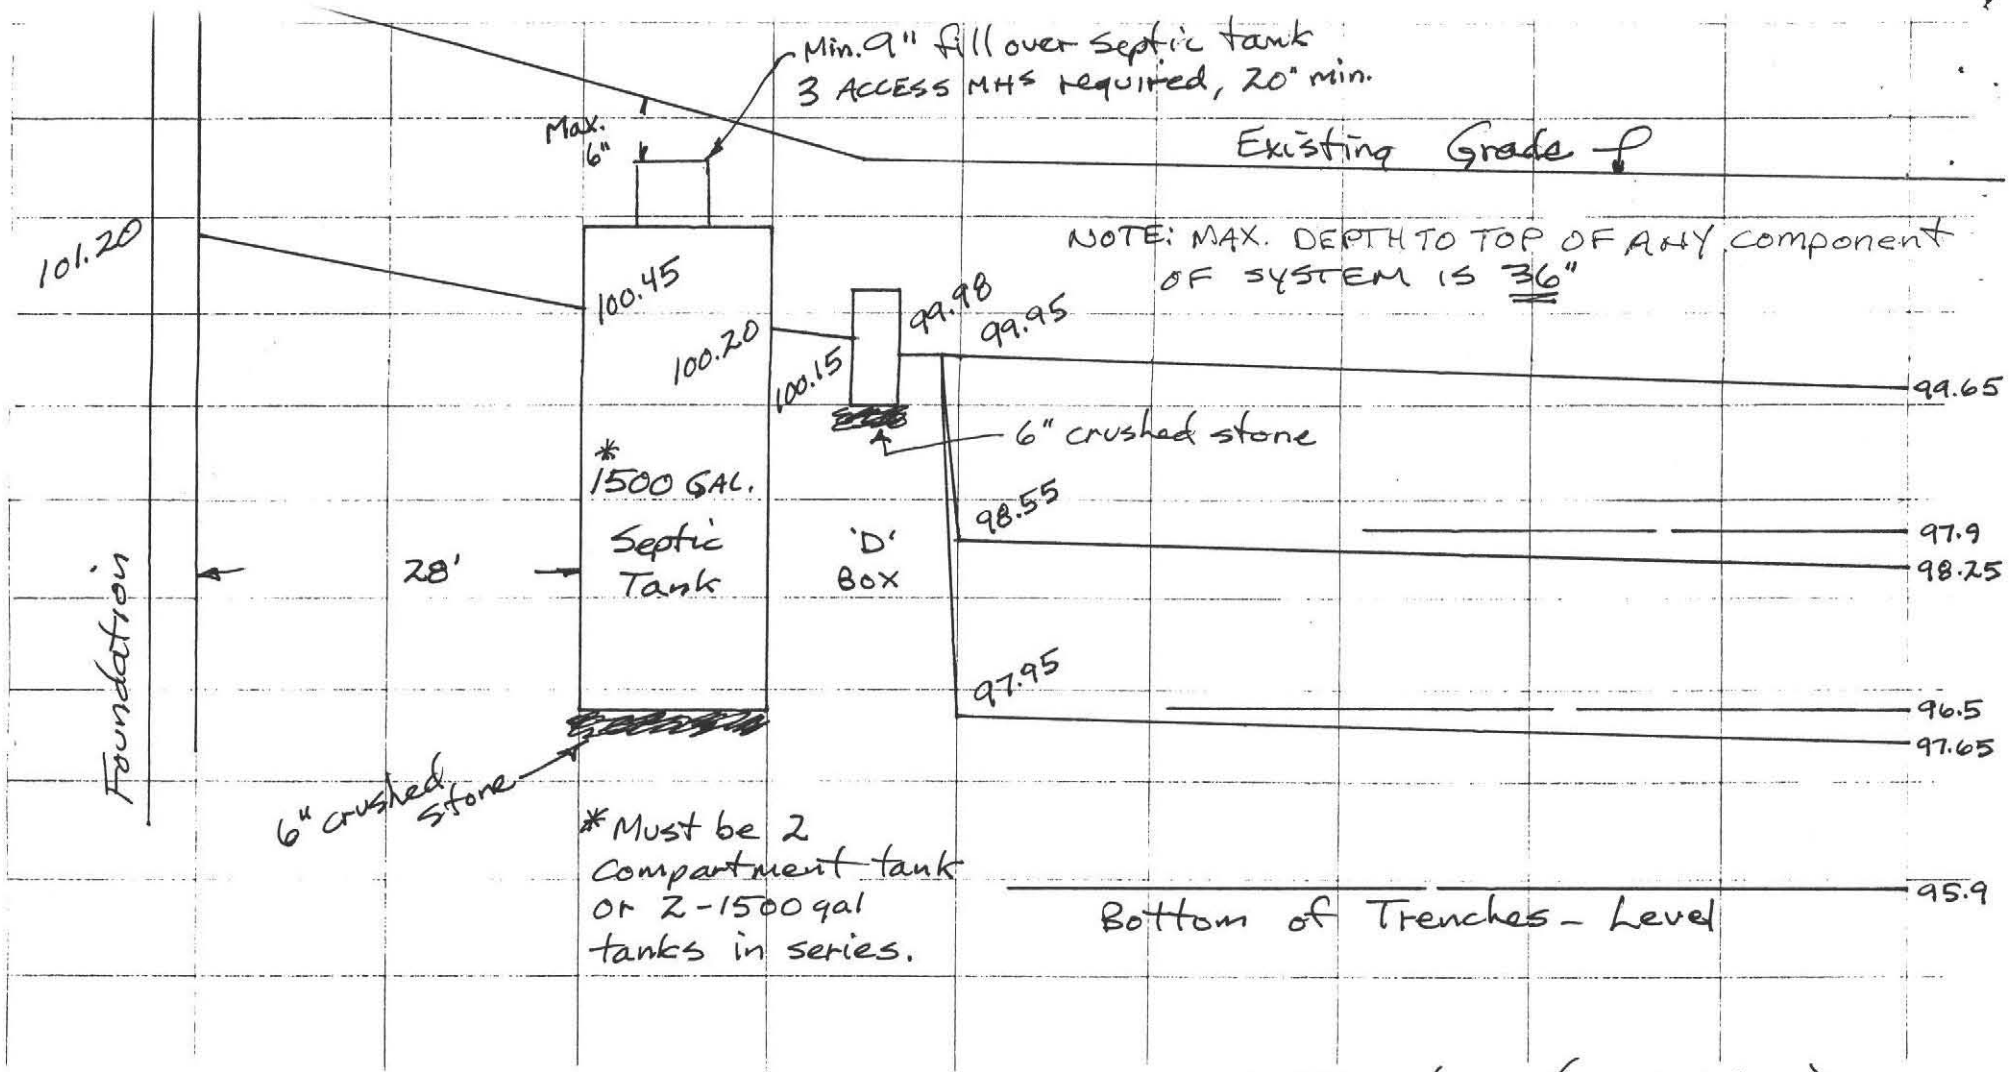 Min. 9" fill over septic tank
3 ACCESS MHS required, 20" min.
Max.
6"
Existing Grade
101.20
NOTE: MAX. DEPTH TO TOP OF ANY component
OF SYSTEM IS 36"
100.45
100.20
100.15
99.98
99.95
99.65
6" crushed stone
*
1500 GAL.
Septic
Tank
'D'
Box
28'
Foundation
98.55
97.9
98.25
97.95
96.5
97.65
6" crushed
stone
* Must be 2
compartment tank
or 2-1500 gal
tanks in series.
95.9
Bottom of Trenches - Level